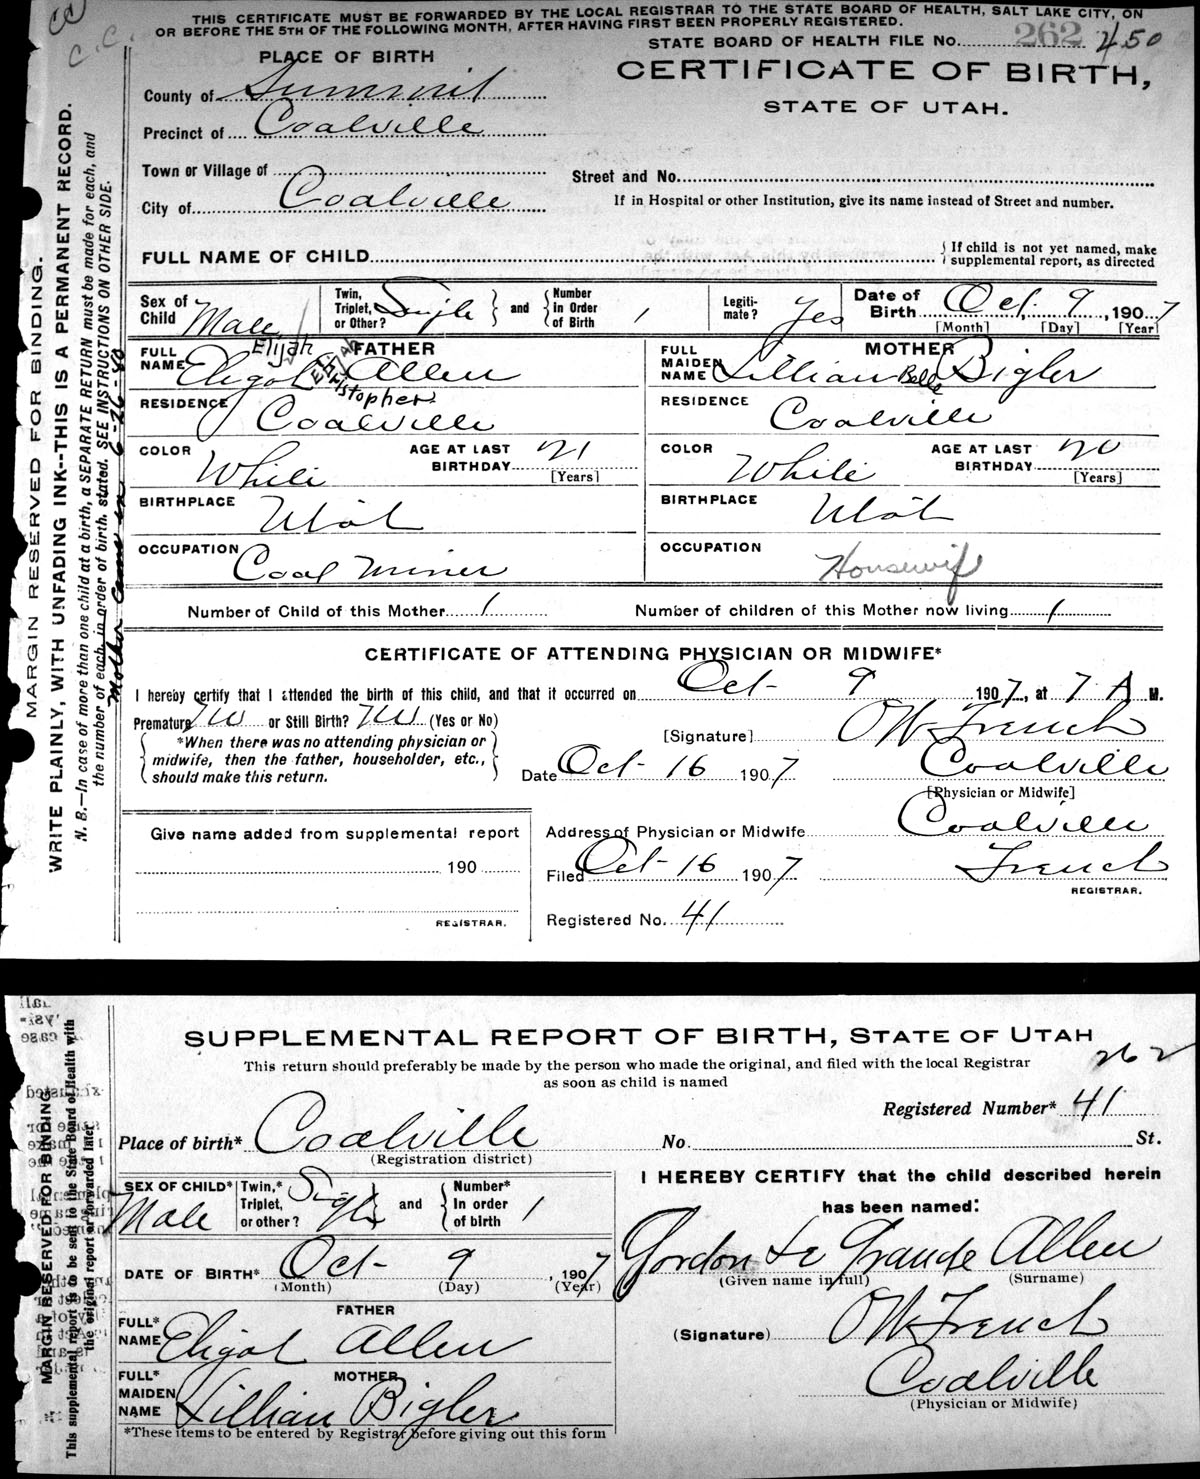 THIS CERTIFICATE MUST BE FORWARDED BY THE LOCAL REGISTRAR TO THE STATE BOARD OF HEALTH, SALT LAKE CITY, ON
OR BEFORE THE 5TH OF THE FOLLOWING MONTH, AFTER HAVING FIRST BEEN PROPERLY REGISTERED.
C.C.
STATE BOARD OF HEALTH FILE No. 262 450
PLACE OF BIRTH
CERTIFICATE OF BIRTH,
STATE OF UTAH.
County of Summit
Precinct of Coalville
Town or Village of
Street and No.
City of Coalville
If in Hospital or other Institution, give its name instead of Street and number.
FULL NAME OF CHILD
If child is not yet named, make
supplemental report, as directed
Sex of Child Male
Twin, Triplet, or Other? Single and Number in Order of Birth 1
Legitimate? Yes
Date of Birth Oct. 9, 1907
[Month] [Day] [Year]
FATHER
FULL NAME Eligah Allen
Elijah
Christopher
MOTHER
FULL MAIDEN NAME Lillian Belle Bigler
RESIDENCE Coalville
RESIDENCE Coalville
COLOR White AGE AT LAST BIRTHDAY 21 [Years]
COLOR White AGE AT LAST BIRTHDAY 20 [Years]
BIRTHPLACE Utah
BIRTHPLACE Utah
OCCUPATION Coal Miner
OCCUPATION Housewife
Number of Child of this Mother 1
Number of children of this Mother now living 1
CERTIFICATE OF ATTENDING PHYSICIAN OR MIDWIFE*
I hereby certify that I attended the birth of this child, and that it occurred on Oct- 9 1907, at 7 A M.
Premature No or Still Birth? No (Yes or No)
*When there was no attending physician or
midwife, then the father, householder, etc.,
should make this return.
[Signature] OW French
Date Oct- 16 1907
Coalville
[Physician or Midwife]
Give name added from supplemental report
190
REGISTRAR.
Address of Physician or Midwife Coalville
Filed Oct- 16 1907 French
REGISTRAR.
Registered No. 41
MARGIN RESERVED FOR BINDING.
WRITE PLAINLY, WITH UNFADING INK--THIS IS A PERMANENT RECORD.
N. B.—In case of more than one child at a birth, a SEPARATE RETURN must be made for each, and
the number of each, in order of birth, stated. SEE INSTRUCTIONS ON OTHER SIDE.
Mother came in 6-26-80
SUPPLEMENTAL REPORT OF BIRTH, STATE OF UTAH
262
This return should preferably be made by the person who made the original, and filed with the local Registrar
as soon as child is named
Registered Number* 41
Place of birth* Coalville No. St.
(Registration district)
SEX OF CHILD* Male
Twin,* Triplet, or other? Single and Number* In order of birth 1
I HEREBY CERTIFY that the child described herein
has been named:
Gordon Le Grande Allen
(Given name in full) (Surname)
DATE OF BIRTH* Oct- 9, 1907
(Month) (Day) (Year)
FATHER
FULL* NAME Eligah Allen
(Signature) OW French
MOTHER
FULL* MAIDEN NAME Lillian Bigler
Coalville
(Physician or Midwife)
*These items to be entered by Registrar before giving out this form
MARGIN RESERVED FOR BINDING
This supplemental report to be sent to the State Board of Health with
the original report or forwarded later.